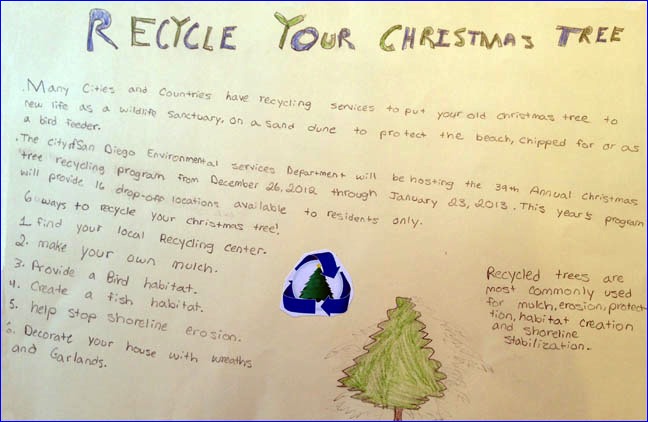 RECYCLE YOUR CHRISTMAS TREE
. Many Cities and Countries have recycling services to put your old christmas tree to
new life as a wildlife sanctuary, on a sand dune to protect the beach, chipped for or as
a bird feeder.
. The city of San Diego Environmental services Department will be hosting the 39th Annual Christmas
tree recycling program from December 26, 2012 through January 23, 2013. This year's program
will provide 16 drop-off locations available to residents only.
6 ways to recycle your christmas tree!
1. find your local Recycling center.
2. make your own mulch.
3. Provide a Bird habitat.
4. Create a fish habitat.
5. help stop shoreline erosion.
6. Decorate your house with wreaths
and Garlands.
Recycled trees are
most commonly used
for mulch, erosion, protect-
tion, habitat creation
and shoreline
stabilization.